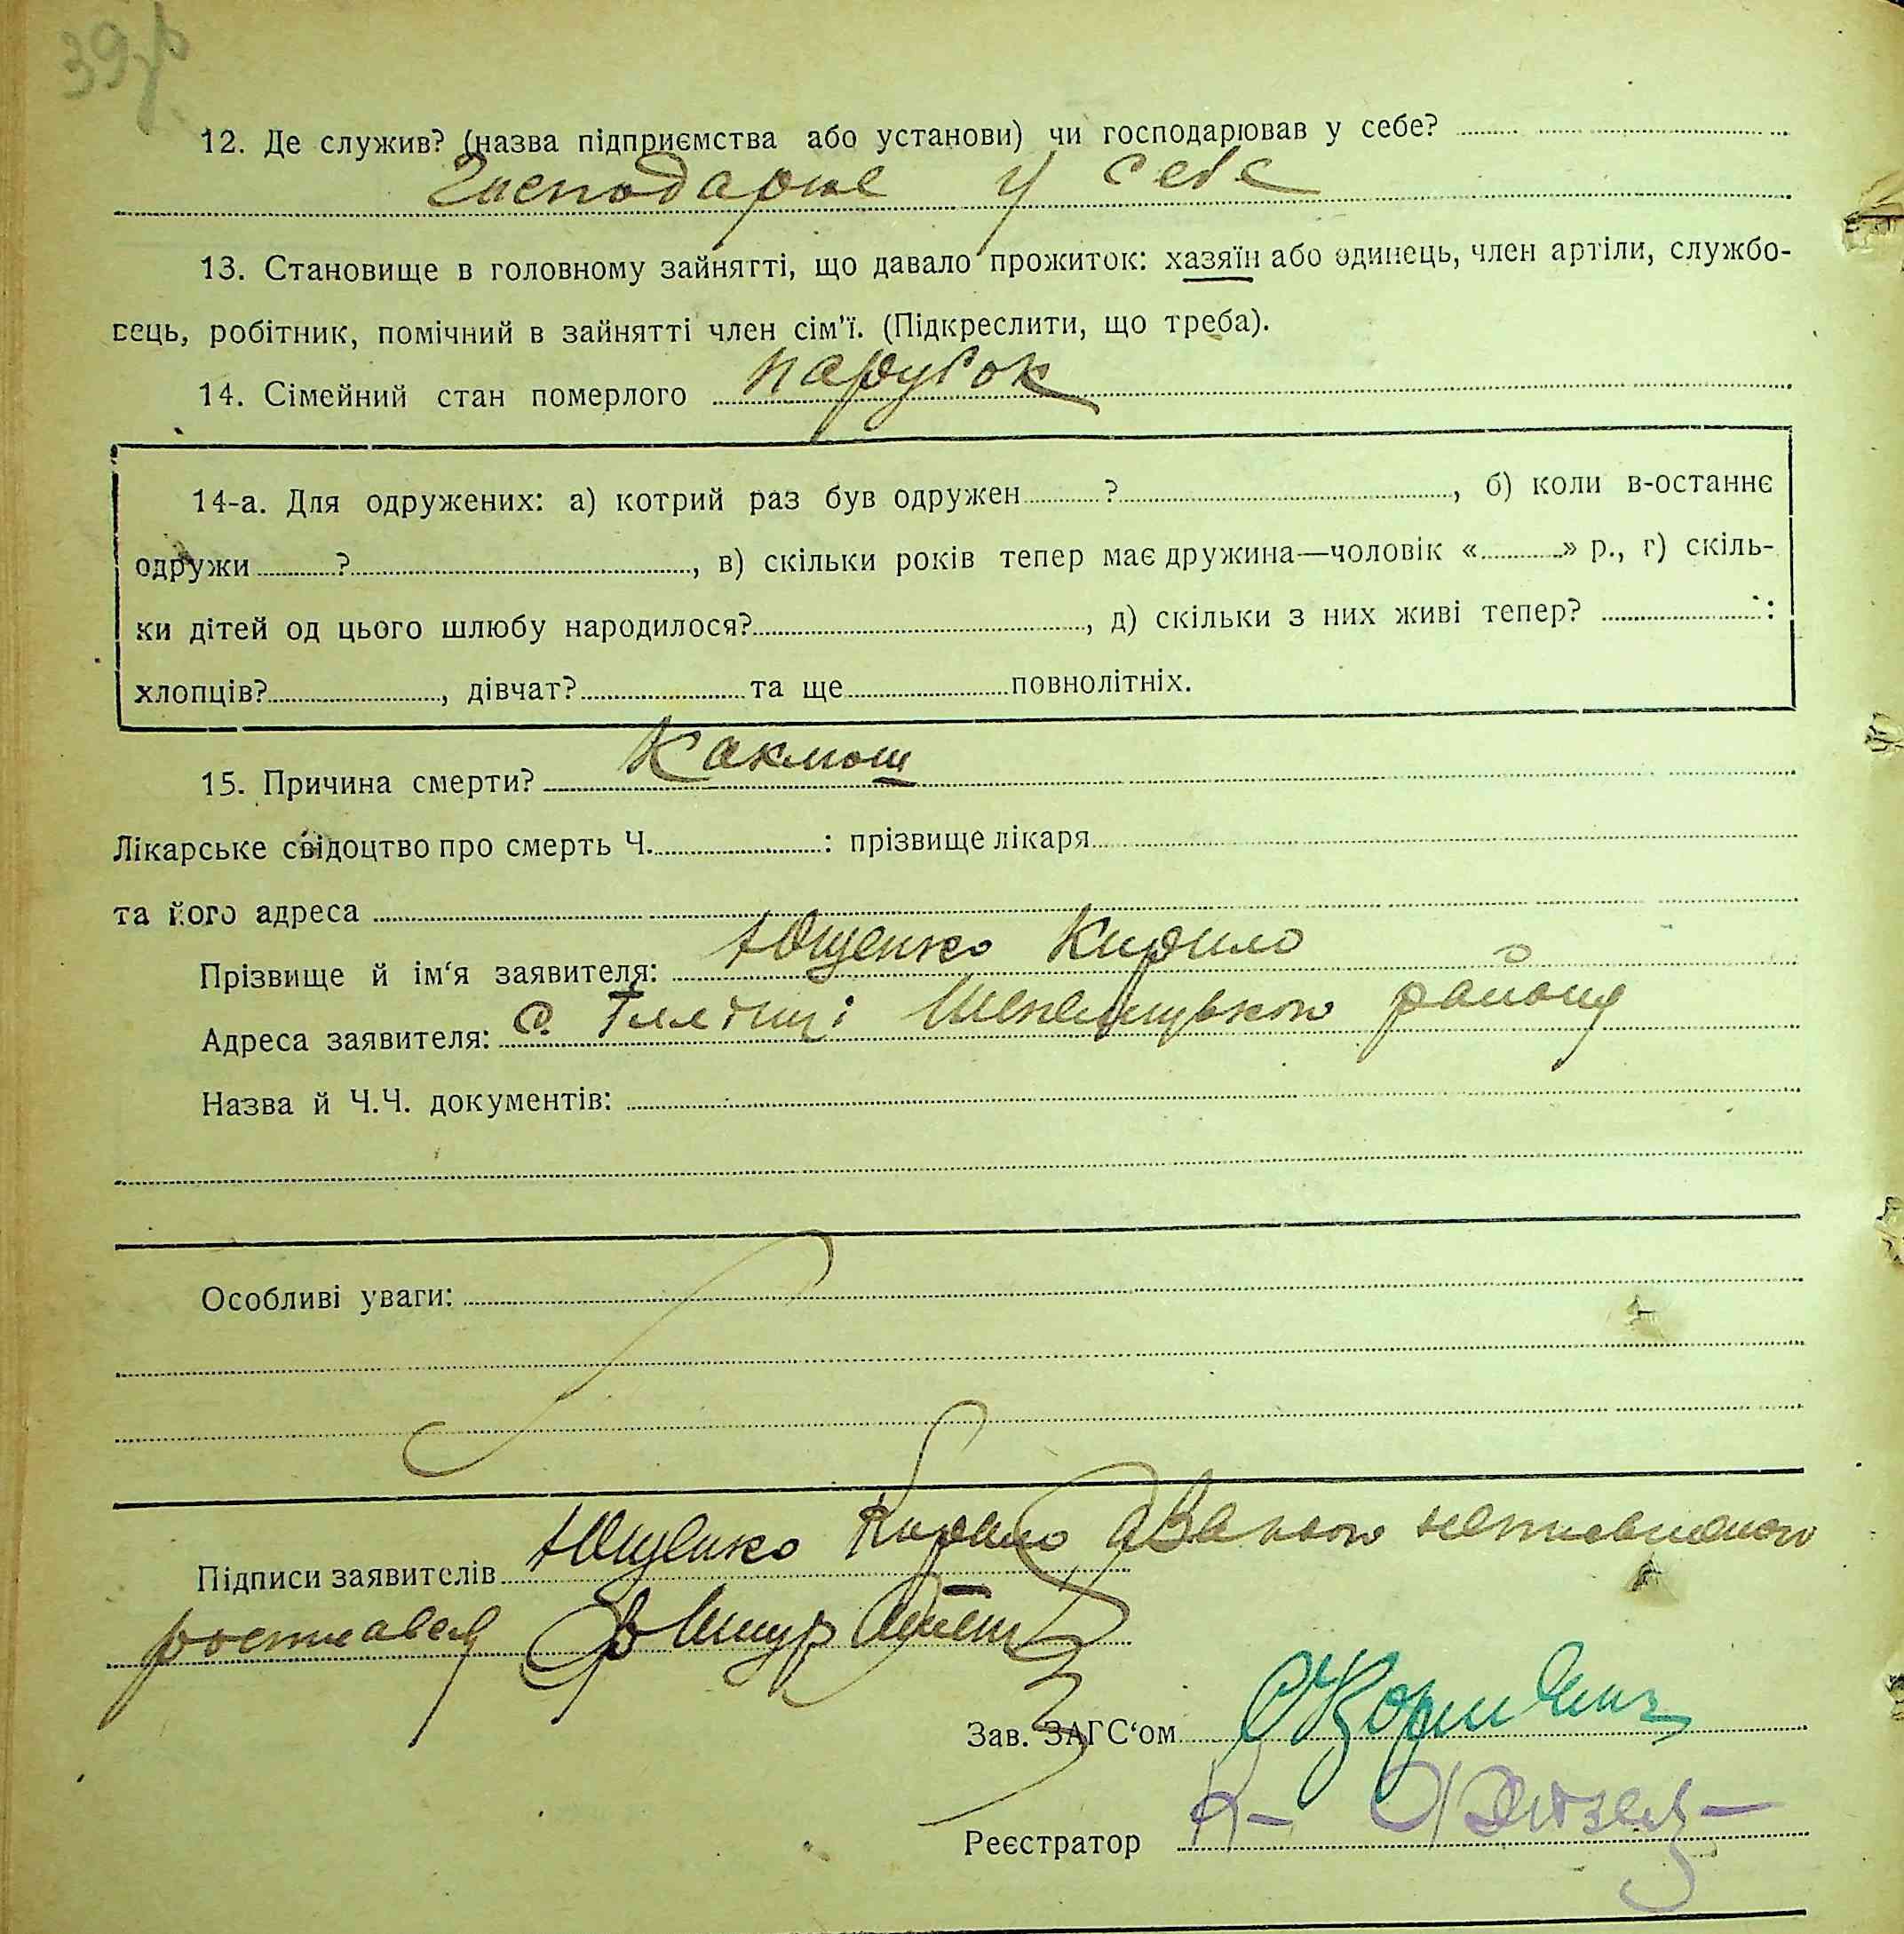 39
12. Де служив? (назва підприємства або установи) чи господарював у себе?
Господарює у себе
13. Становище в головному зайнятті, що давало прожиток: хазяїн або одинець, член артіли, службо-
вець, робітник, помічний в зайнятті член сім'ї. (Підкреслити, що треба).
14. Сімейний стан померлого парубок
14-а. Для одружених: а) котрий раз був одружен ?, б) коли в-останнє
одружи ?, в) скільки років тепер має дружина—чоловік « » р., г) скіль-
ки дітей од цього шлюбу народилося?, д) скільки з них живі тепер? :
хлопців?, дівчат? та ще повнолітніх.
15. Причина смерти? Каклюш
Лікарське свідоцтво про смерть Ч. : прізвище лікаря
та його адреса
Прізвище й ім'я заявителя: Ющенко Кирило
Адреса заявителя: с. району
Назва й Ч.Ч. документів:
Особливі уваги:
Підписи заявителів Ющенко Кирило
росписався
Зав. ЗАГС'ом
Реєстратор